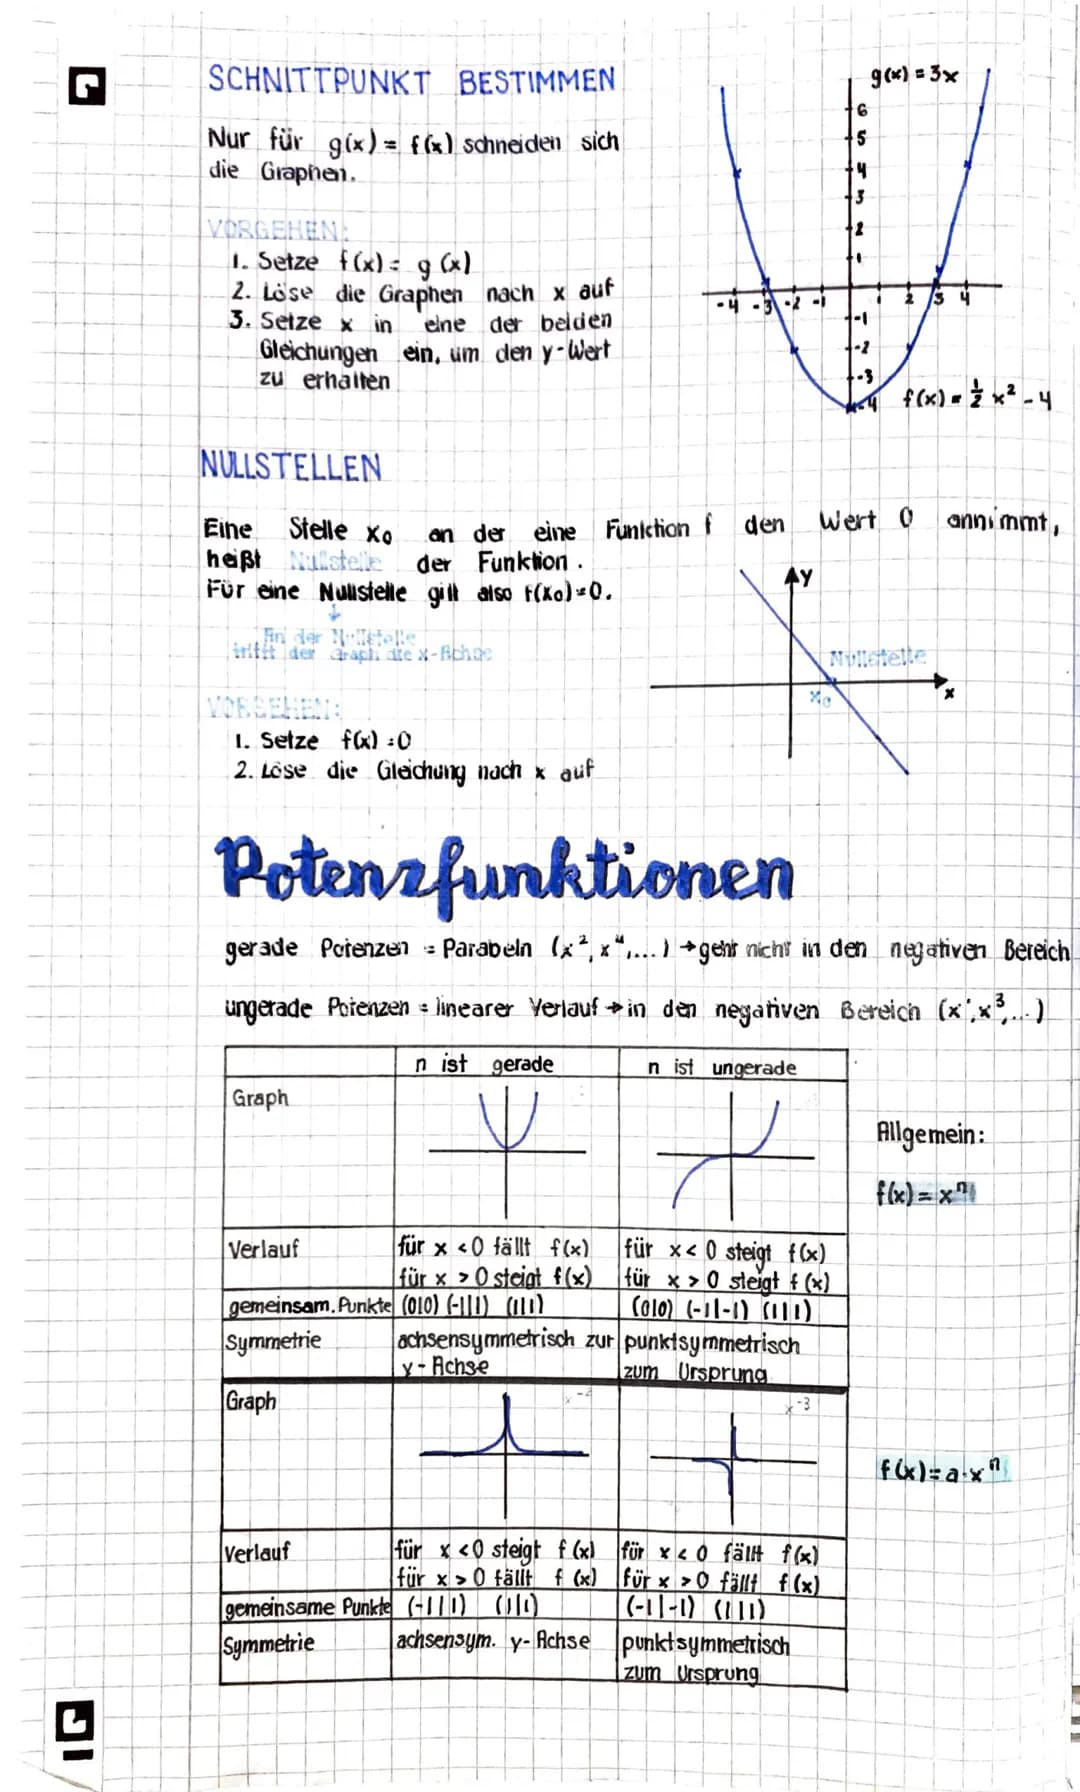 SCHNITTPUNKT BESTIMMEN
Nur für g(x) = f(x) schneiden sich
die Graphen.
VORGEHEN:
1. Setze f(x) = g(x)
2. Löse die Graphen nach x auf
3. Setze x in eine der beiden
Gleichungen ein, um den y-Wert
zu erhalten
g(x) = 3x
6
5
4
3
2
1
-4 -3 -2 -1 1 2 3 4
-1
-2
-3
-4
f(x) = ½ x² - 4
NULLSTELLEN
Eine Stelle x₀ an der eine Funktion f den Wert 0 annimmt,
heißt Nullstelle der Funktion.
Für eine Nullstelle gilt also f(x₀)=0.
An der Nullstelle
trifft der Graph die x-Achse
y
Nullstelle
x₀
x
VORGEHEN:
1. Setze f(x) =0
2. Löse die Gleichung nach x auf
Potenzfunktionen
gerade Potenzen = Parabeln (x², x⁴,...) → geht nicht in den negativen Bereich
ungerade Potenzen = linearer Verlauf → in den negativen Bereich (x¹, x³,...)
n ist gerade n ist ungerade
Graph
Allgemein:
f(x) = xⁿ
Verlauf für x <0 fällt f(x) für x < 0 steigt f(x)
für x > 0 steigt f(x) für x > 0 steigt f(x)
gemeinsam. Punkte (0|0) (-1|1) (1|1) (0|0) (-1|-1) (1|1)
Symmetrie achsensymmetrisch zur punktsymmetrisch
y-Achse zum Ursprung
Graph x⁻² x⁻³
f(x) = a·xⁿ
Verlauf für x <0 steigt f(x) für x < 0 fällt f(x)
für x > 0 fällt f(x) für x > 0 fällt f(x)
gemeinsame Punkte (-1|1) (1|1) (-1|-1) (1|1)
Symmetrie achsensym. y-Achse punktsymmetrisch
zum Ursprung